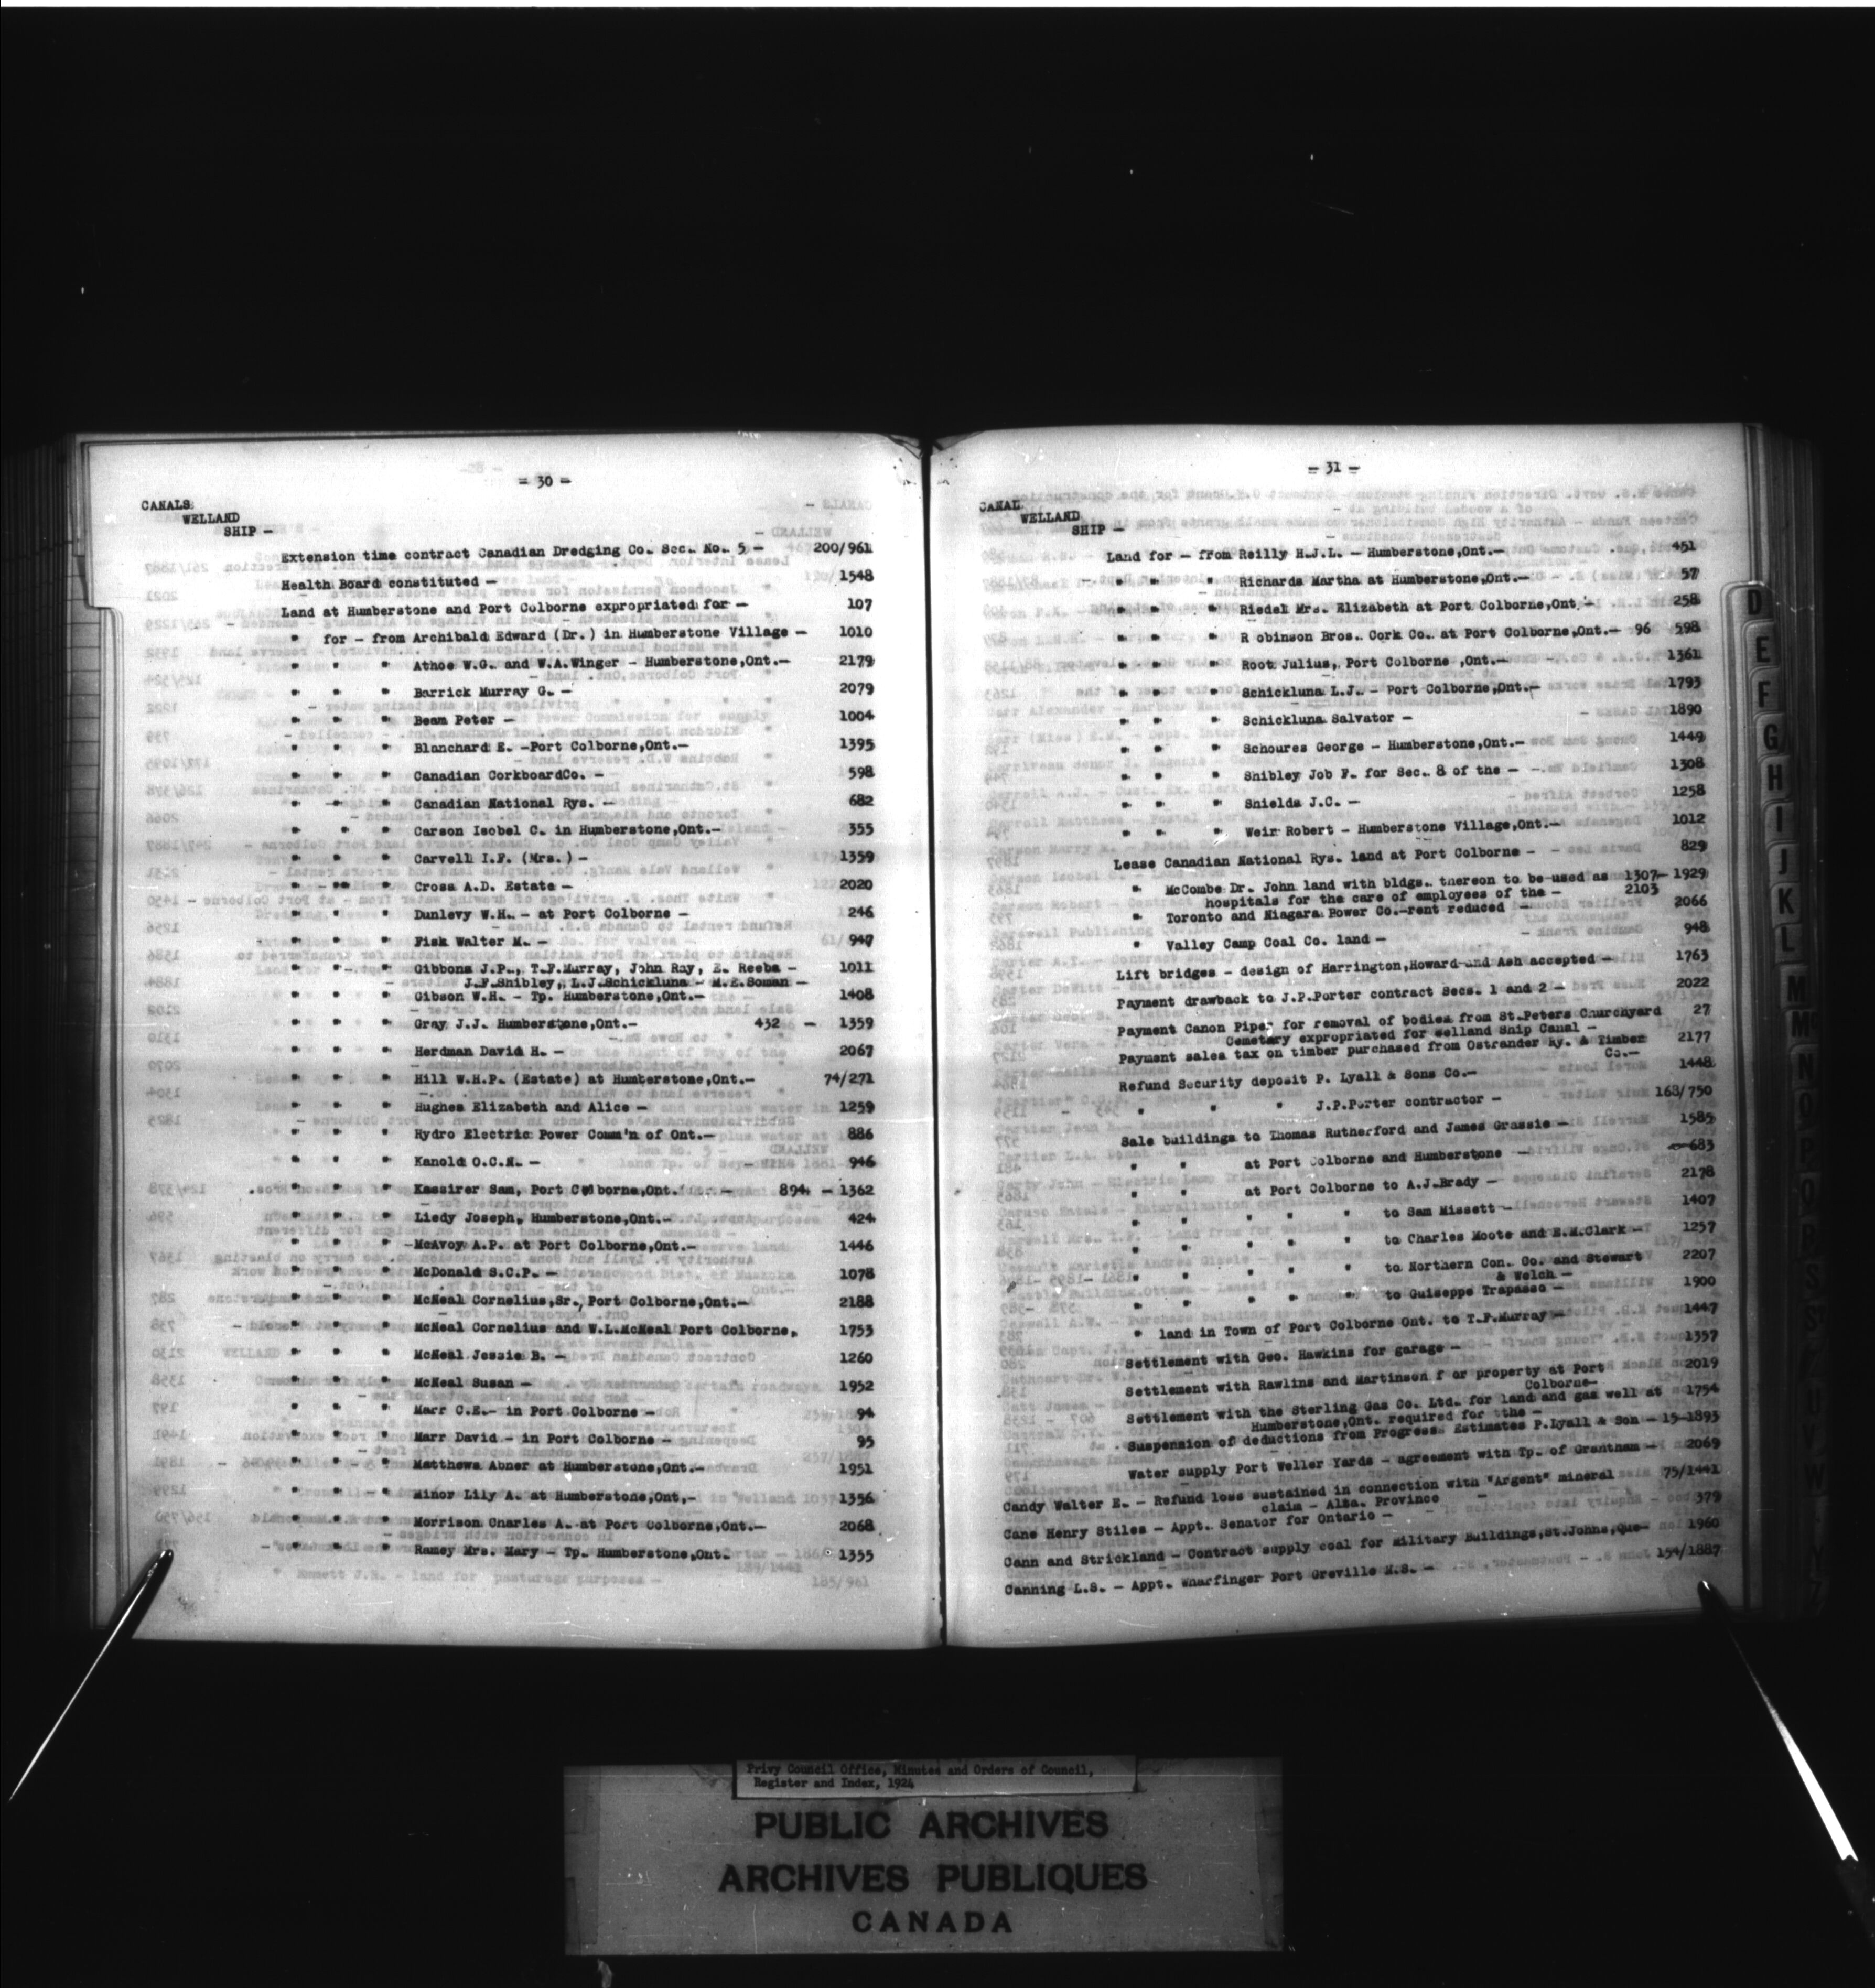 - 30 -
CANALS
WELLAND
SHIP -
Extension time contract Canadian Dredging Co. Sec. No. 5 - 200/961
Health Board constituted - 1548
Land at Humberstone and Port Colborne expropriated for - 107
" for - from Archibald Edward (Dr.) in Humberstone Village - 1010
" " " Athoe W.G. and W.A.Winger - Humberstone,Ont.- 2179
" " " Barrick Murray G. - 2079
" " " Beam Peter - 1004
" " " Blanchard E. -Port Colborne,Ont.- 1395
" " " Canadian CorkboardCo. - 598
" " " Canadian National Rys. - 682
" " " Carson Isobel C. in Humberstone,Ont.- 355
" " " Carvell I.F. (Mrs.) - 1359
" " " Cross A.D. Estate - 2020
" " " Dunlevy W.H. - at Port Colborne - 246
" " " Fisk Walter M. - 947
" " " Gibbons J.P., T.F.Murray, John Ray, E. Reeba - 1011
J.F.Shibley, L.J.Schickluna - M.E.Soman -
" " " Gibson W.H. - Tp. Humberstone,Ont.- 1408
" " " Gray J.J. Humberstone,Ont.- 432 - 1359
" " " Herdman David H. - 2067
" " " Hill W.H.P. (Estate) at Humberstone,Ont.- 74/271
" " " Hughes Elizabeth and Alice - 1259
" " " Hydro Electric Power Comm'n of Ont.- 886
" " " Kanold O.C.N. - 946
" " " Kassirer Sam, Port Colborne,Ont. - 894 - 1362
" " " Liedy Joseph, Humberstone,Ont.- 424
" " " McAvoy A.P. at Port Colborne,Ont.- 1446
" " " McDonald S.C.P. - 1078
" " " McNeal Cornelius,Sr., Port Colborne,Ont.- 2188
" " " McNeal Cornelius and W.L.McNeal Port Colborne, 1753
" " " McNeal Jessie B. - 1260
" " " McNeal Susan - 1952
" " " Marr C.E.- in Port Colborne - 94
" " " Marr David - in Port Colborne - 95
" " " Matthews Abner at Humberstone,Ont.- 1951
" " " Minor Lily A. at Humberstone,Ont,- 1356
" " " Morrison Charles A. at Port Colborne,Ont.- 2068
" " " Ramey Mrs. Mary - Tp. Humberstone,Ont. 1355
- 31 -
CANAL
WELLAND
SHIP -
Land for - from Reilly H.J.L. - Humberstone,Ont.- 451
" " " Richards Martha at Humberstone,Ont.- 57
" " " Riedel Mrs. Elizabeth at Port Colborne,Ont - 258
" " " R obinson Bros. Cork Co. at Port Colborne,Ont.- 96 598
" " " Root Julius, Port Colborne ,Ont.- 1361
" " " Schickluna L.J. - Port Colborne,Ont.- 1793
" " " Schickluna Salvator - 1890
" " " Schoures George - Humberstone,Ont.- 1449
" " " Shibley Job F. for Sec. 8 of the - 1308
" " " Shields J.C. - 1258
" " " Weir Robert - Humberstone Village,Ont.- 1012
Lease Canadian National Rys. land at Port Colborne - 829
" McCombe Dr. John land with bldgs. thereon to be used as 1307- 1929
hospitals for the care of employees of the - 2103
" Toronto and Niagara Power Co.-rent reduced - 2066
" Valley Camp Coal Co. land - 948
Lift bridges - design of Harrington,Howard and Ash accepted - 1763
Payment drawback to J.P.Porter contract Secs. 1 and 2 - 2022
Payment Canon Piper for removal of bodies from St.Peters Churchyard 27
Cemetery expropriated for Welland Ship Canal -
Payment sales tax on timber purchased from Ostrander Ry. & Timber 2177
Co.-
Refund Security deposit P. Lyall & Sons Co.- 1448
" " " J.P.Porter contractor - 163/750
Sale buildings to Thomas Rutherford and James Grassie - 1585
" " at Port Colborne and Humberstone - 683
" " at Port Colborne to A.J.Brady - 2178
" " " " to Sam Missett - 1407
" " " " to Charles Moote and E.M.Clark - 1257
" " " " to Northern Con. Co. and Stewart 2207
& Welch -
" " " " to Guiseppe Trapasso - 1900
" land in Town of Port Colborne Ont. to T.F.Murray - 1447
Settlement with Geo. Hawkins for garage - 1357
Settlement with Rawlins and Martinson f or property at Port 2019
Colborne-
Settlement with the Sterling Gas Co. Ltd. for land and gas well at 1754
Humberstone,Ont. required for the -
Suspension of deductions from Progress Estimates P.Lyall & Son - 15-1893
Water supply Port Weller Yards - agreement with Tp. of Grantham - 2069
Candy Walter E. - Refund loss sustained in connection with "Argent" mineral 75/1441
claim - Alba. Province -
Cane Henry Stiles - Appt. Senator for Ontario - 379
Cann and Strickland - Contract supply coal for Military Buildings,St.Johns,Que- 1960
Canning L.S. - Appt. Wharfinger Port Greville N.S. - 154/1887
D
E
F
G
H
I
J
K
L
M
Mc
N
O
Privy Council Office, Minutes and Orders of Council,
Register and Index, 1924
PUBLIC ARCHIVES
ARCHIVES PUBLIQUES
CANADA